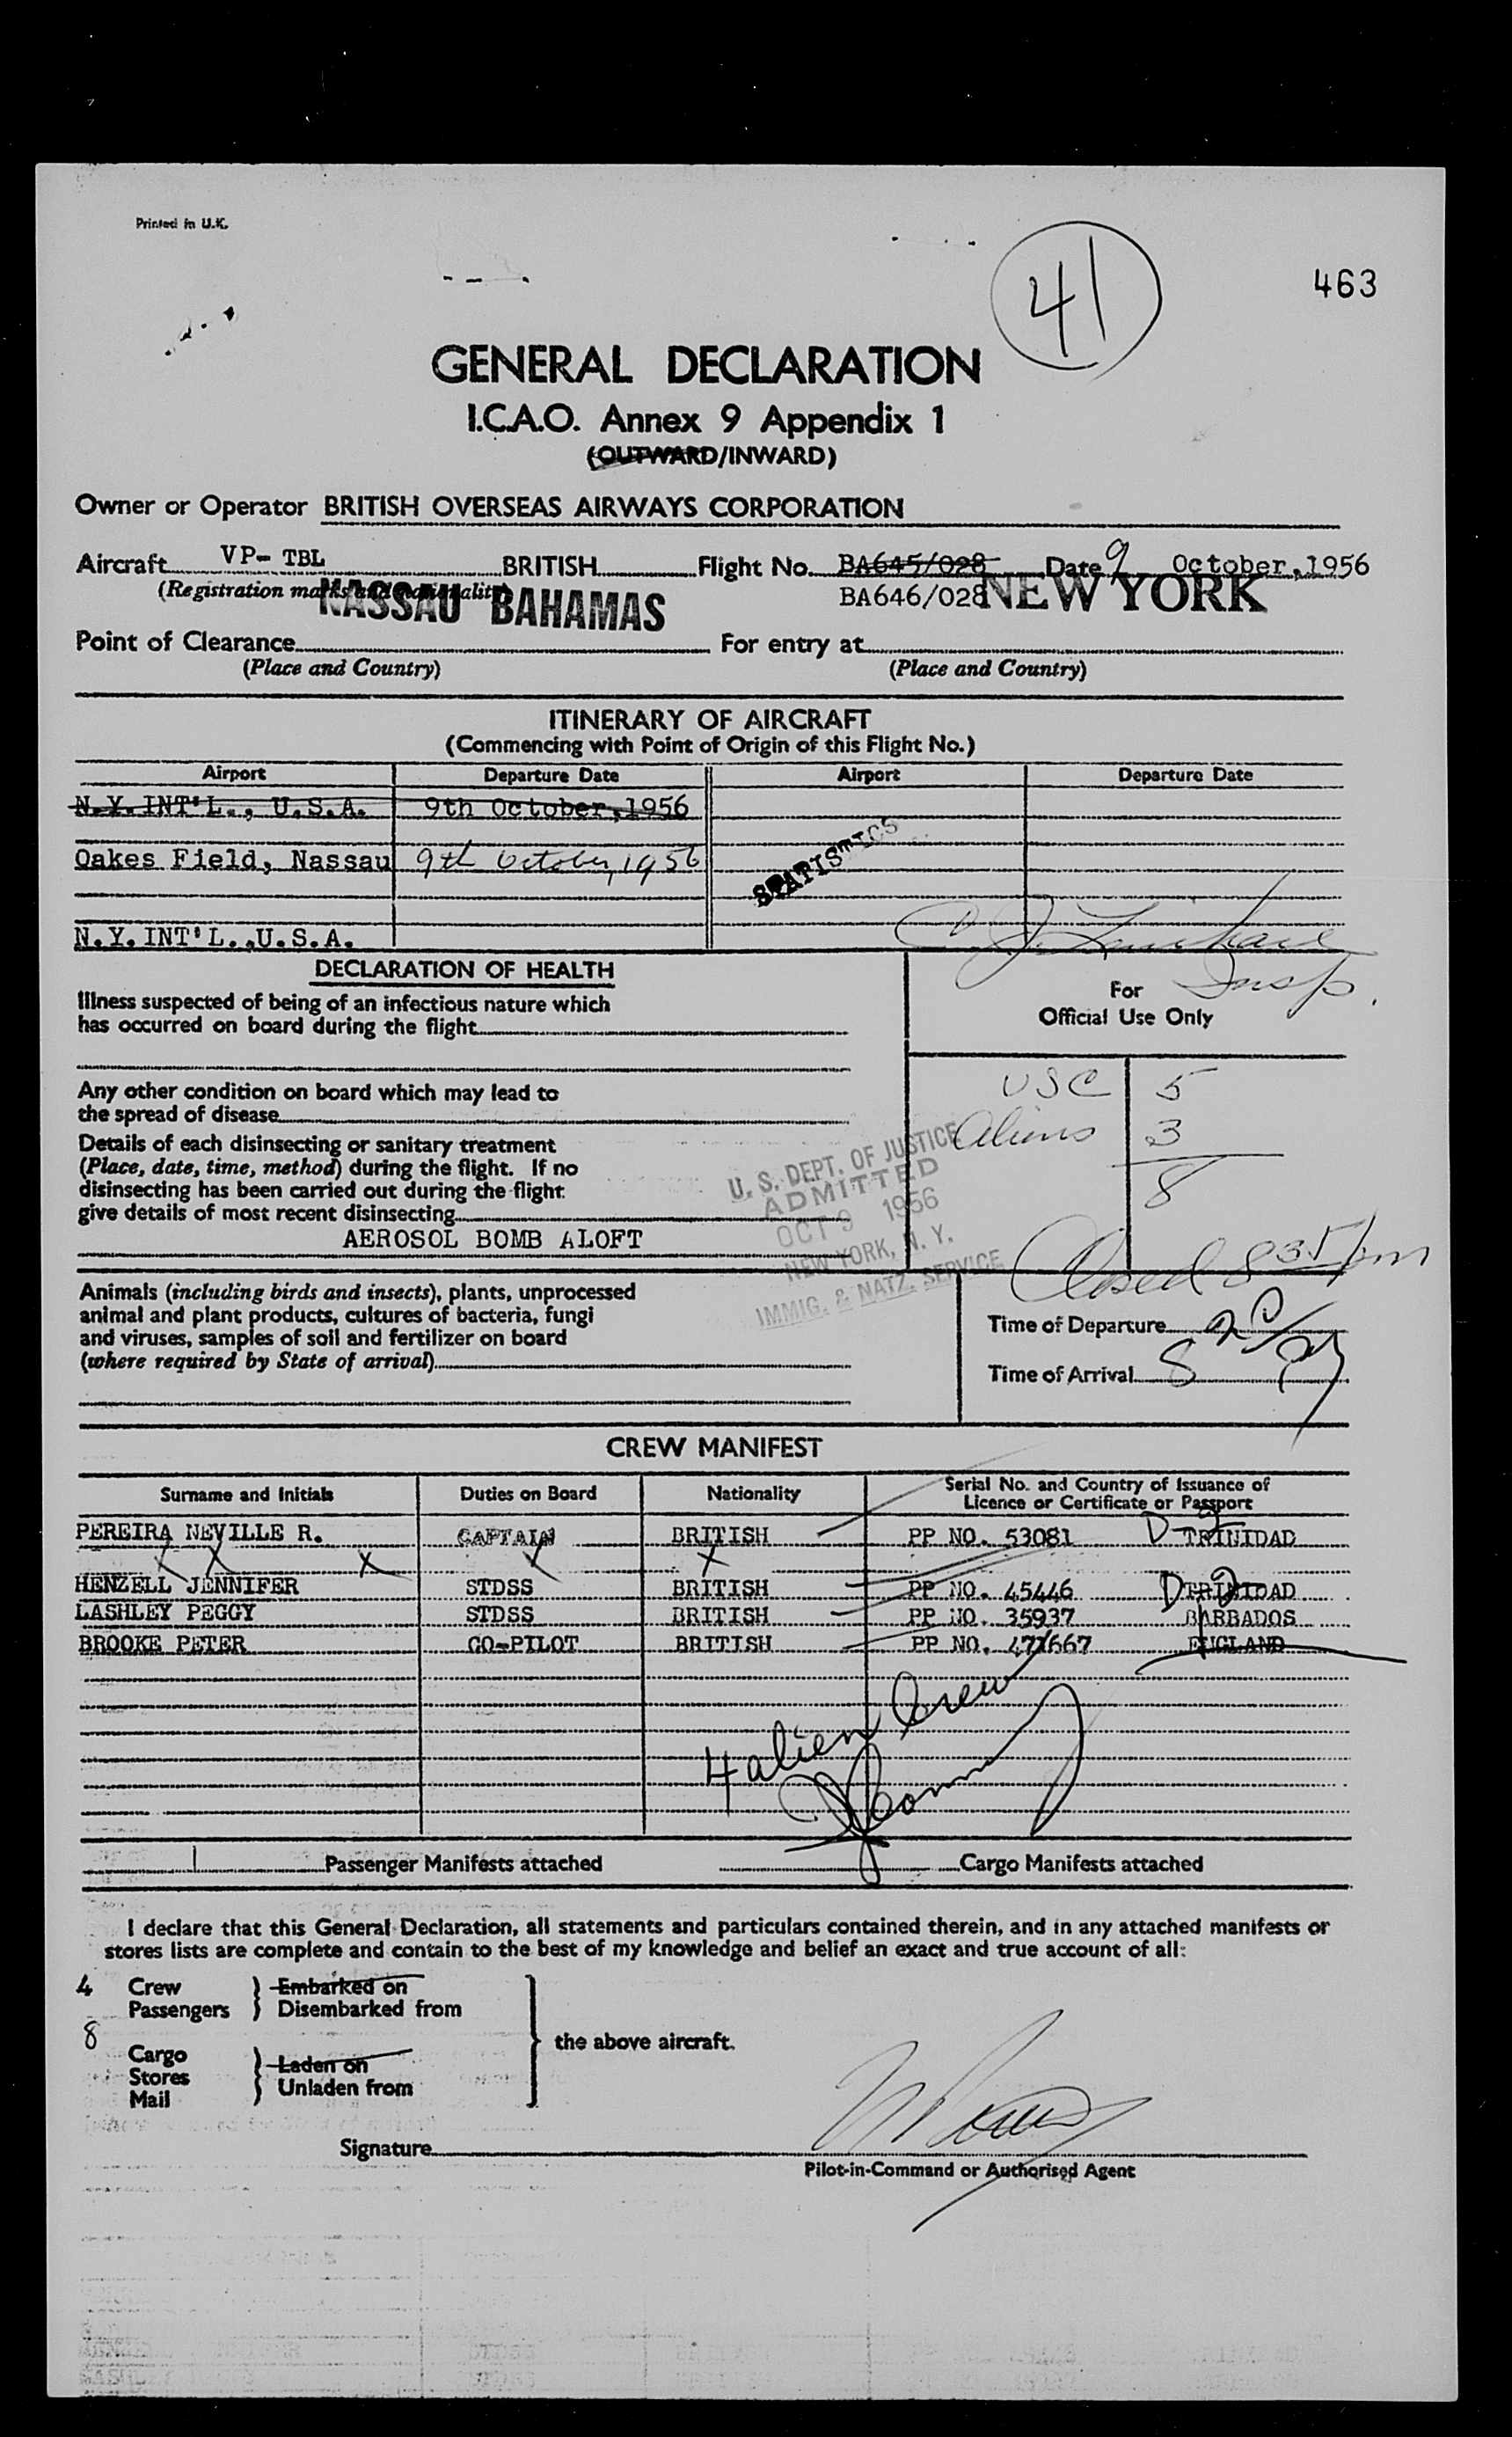 Printed in U.K.
41
463
GENERAL DECLARATION
I.C.A.O. Annex 9 Appendix 1
(OUTWARD/INWARD)
Owner or Operator BRITISH OVERSEAS AIRWAYS CORPORATION
Aircraft VP- TBL BRITISH Flight No. BA645/028 Date 9 October, 1956
(Registration marks and nationality) BA646/028
NASSAU BAHAMAS NEW YORK
Point of Clearance For entry at
(Place and Country) (Place and Country)
ITINERARY OF AIRCRAFT
(Commencing with Point of Origin of this Flight No.)
Airport Departure Date Airport Departure Date
N.Y. INT'L., U.S.A. 9th October, 1956
STATISTICS
Oakes Field, Nassau 9th October, 1956
N.Y. INT'L., U.S.A.
DECLARATION OF HEALTH
Insp.
Illness suspected of being of an infectious nature which
has occurred on board during the flight
For
Official Use Only
Any other condition on board which may lead to
the spread of disease
USC 5
Aliens 3
8
Details of each disinsecting or sanitary treatment
(Place, date, time, method) during the flight. If no
disinsecting has been carried out during the flight
give details of most recent disinsecting
AEROSOL BOMB ALOFT
U. S. DEPT. OF JUSTICE
ADMITTED
OCT 9 1956
NEW YORK, N. Y.
IMMIG. & NATZ. SERVICE
Closed 8 35 pm
Animals (including birds and insects), plants, unprocessed
animal and plant products, cultures of bacteria, fungi
and viruses, samples of soil and fertilizer on board
(where required by State of arrival)
Time of Departure
Time of Arrival 8 20
CREW MANIFEST
Surname and Initials Duties on Board Nationality Serial No. and Country of Issuance of
Licence or Certificate or Passport
PEREIRA NEVILLE R. CAPTAIN BRITISH PP NO. 53081 D-2 TRINIDAD
X X X X X
HENZELL JENNIFER STDSS BRITISH PP NO. 45446 D 2 TRINIDAD
LASHLEY PEGGY STDSS BRITISH PP NO. 35937 BARBADOS
BROOKE PETER CO-PILOT BRITISH PP NO. ENGLAND
4 alien Crew
1 Passenger Manifests attached Cargo Manifests attached
I declare that this General Declaration, all statements and particulars contained therein, and in any attached manifests or
stores lists are complete and contain to the best of my knowledge and belief an exact and true account of all:
4 Crew Embarked on
Passengers Disembarked from
8
the above aircraft.
Cargo Laden on
Stores
Mail Unladen from
Signature
Pilot-in-Command or Authorised Agent